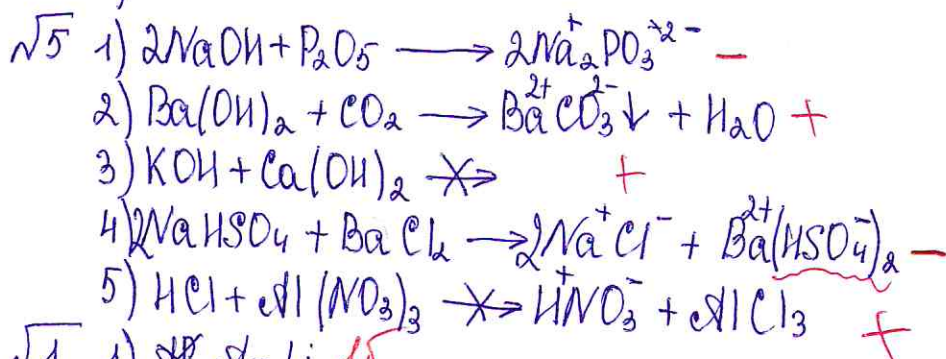 √5 1) 2NaOH + P₂O₅ ⟶ 2Na⁺₂PO₃⁺²⁻ −
2) Ba(OH)₂ + CO₂ ⟶ Ba²⁺CO₃²⁻↓ + H₂O +
3) KOH + Ca(OH)₂ ↛ +
4) 2NaHSO₄ + BaCl₂ ⟶ 2Na⁺Cl⁻ + Ba²⁺(HSO₄⁻)₂ −
5) HCl + Al(NO₃)₃ ↛ H⁺NO₃⁻ + AlCl₃ +
√1 1)